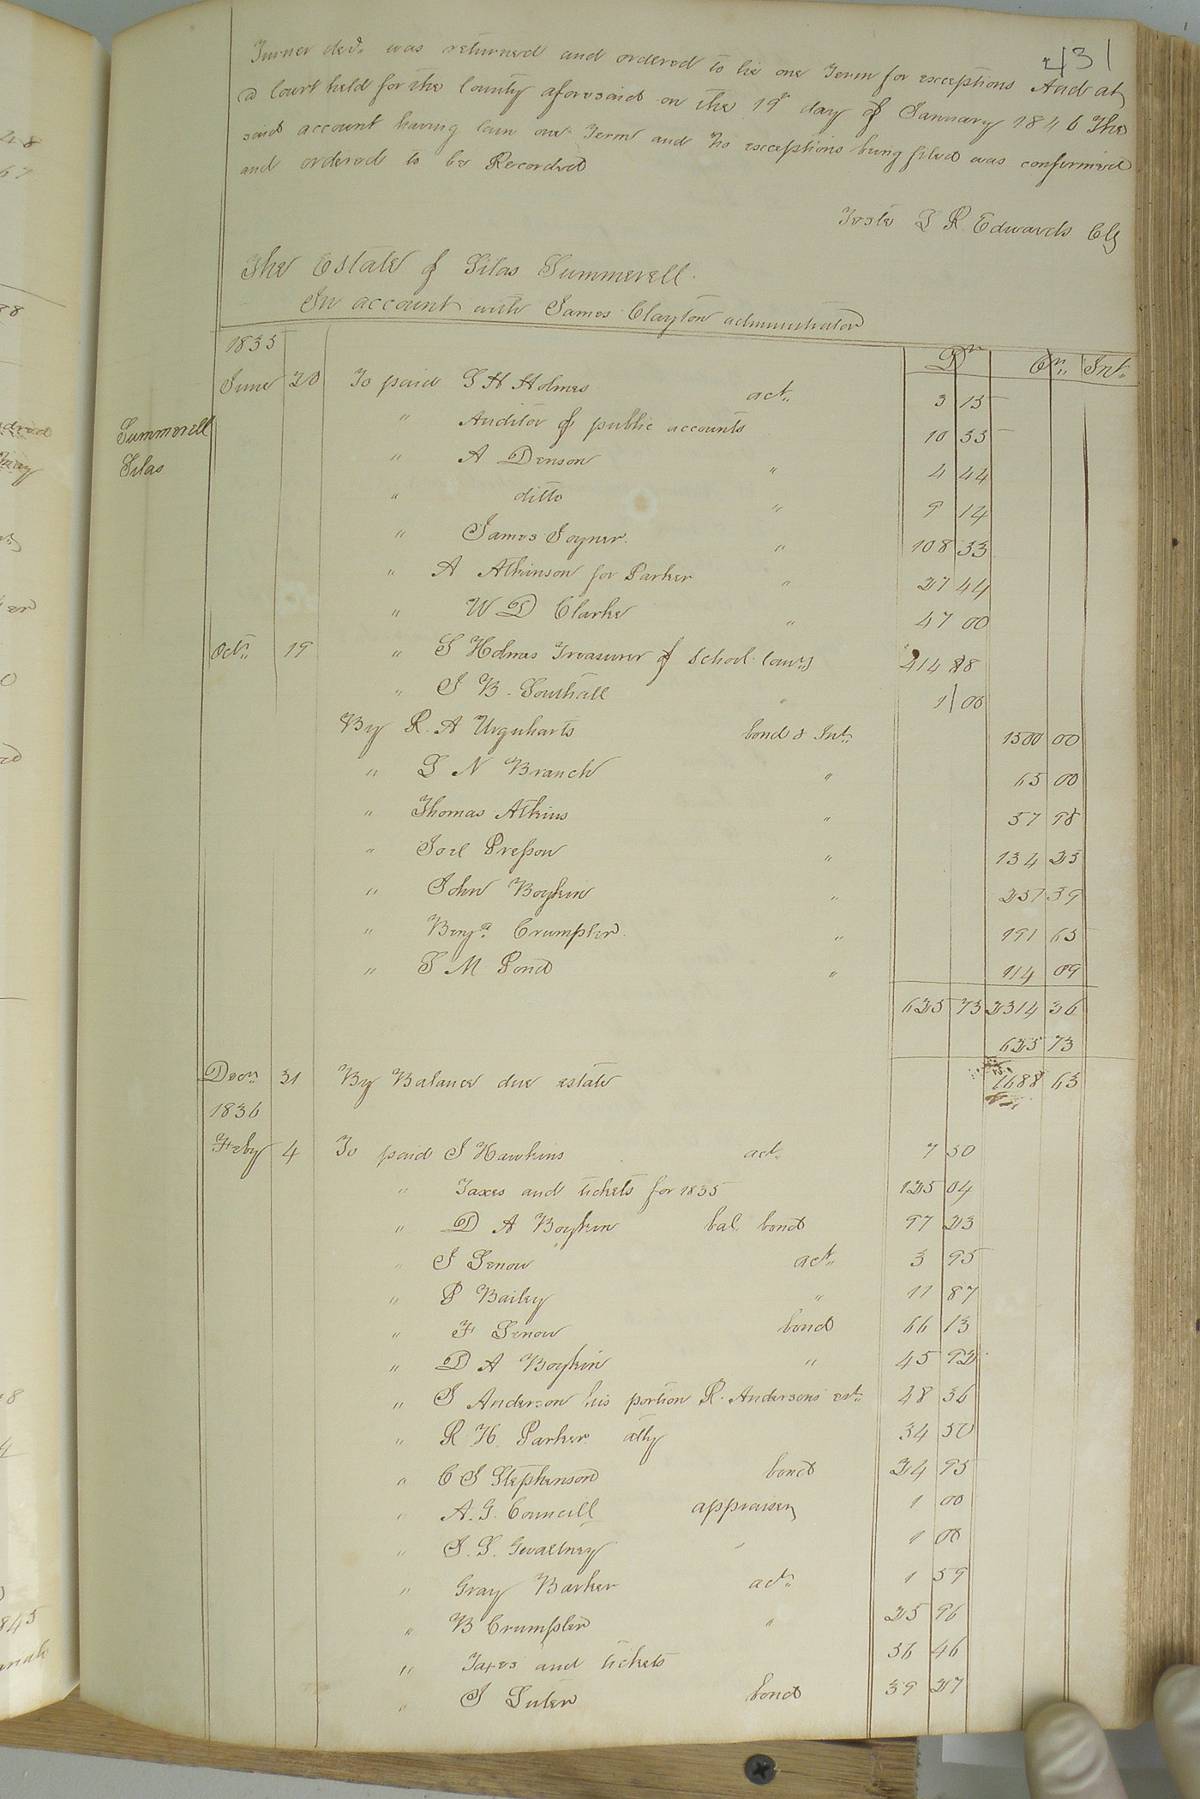 431
Turner dec'd. was returned and ordered to lie one Term for exceptions And at
a Court held for the County aforesaid on the 19th day of January 1846 The
said account having lain one Term and no exceptions being filed was confirmed
and ordered to be Recorded
Teste L R. Edwards Clk
The Estate of Silas Summerell.
In account with James Clayton administrator
1835 Dr. Cr. Int.
June 20 To paid G H Holmes act. 3 15
Summerell
Silas
" Auditor of public accounts 10 35
" A Denson " 4 44
" ditto " 9 14
" James Joyner. " 108 33
" A Atkinson for Parker " 27 44
" W D Clarke " 47 00
Oct. 19 " G Holmes Treasurer of School Com. 414 88
" J B. Southall " 1 00
By R. A Urquharts bond & Int. 1500 00
" L N Branch " 65 00
" Thomas Atkins " 57 98
" Joel Presson " 134 25
" John Boykin " 251 39
" Benja. Crumpler. " 191 65
" S M Pond " 114 09
625 73 2314 36
625 73
Decr. 31 By Balance due estate 1688 63
1836
Feby 4 To paid J Hawkins act. 7 50
" Taxes and tickets for 1835 125 04
" D A Boykin bal. bond 97 23
" J Lenow act. 3 95
" P Bailey " 11 87
" F Lenow bond 66 13
" D A Boykin " 45 92
" J Anderson his portion R. Andersons est. 48 36
" R H. Parker atty 34 50
" C S Stephenson bond 24 95
" A. G. Councill appraiser 1 00
" J. L. Gwaltney " 1 00
" Gray Barker act. 1 59
" B Crumpler " 25 96
" Taxes and tickets 36 46
" J Luter bond 39 27